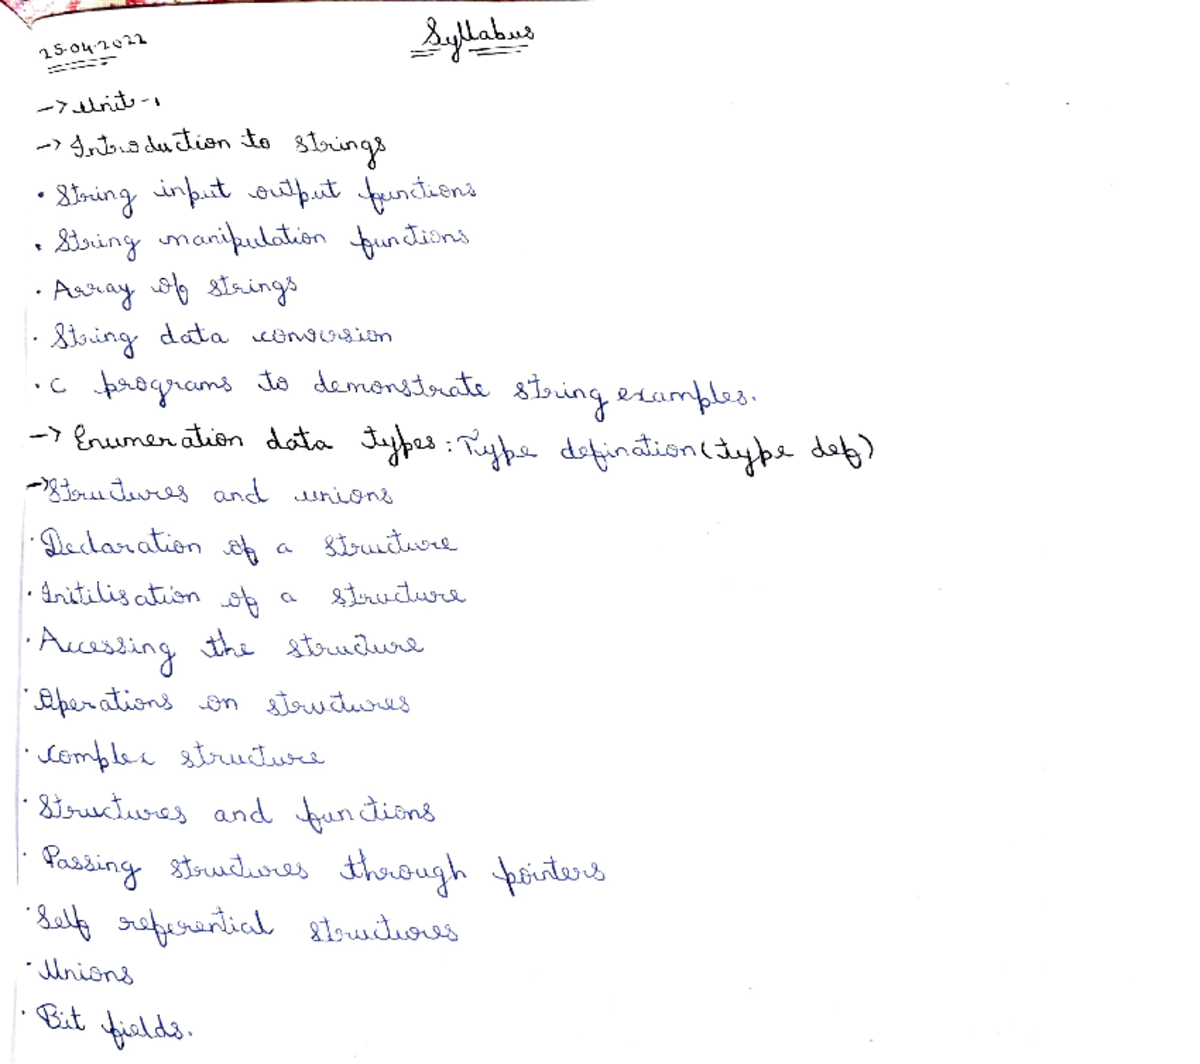 25.04.2022
Syllabus
-> Unit-1
-> Introduction to strings
• String input output functions
• String manipulation functions
• Array of strings
• String data conversion
• C programs to demonstrate string examples.
-> Enumeration data types: Type defination (type def)
-> Structures and unions
• Declaration of a structure
• Initilisation of a structure
• Accessing the structure
• Operations on structures
• complex structure
• Structures and functions
• Passing structures through pointers
• Self referential structures
• Unions
• Bit fields.